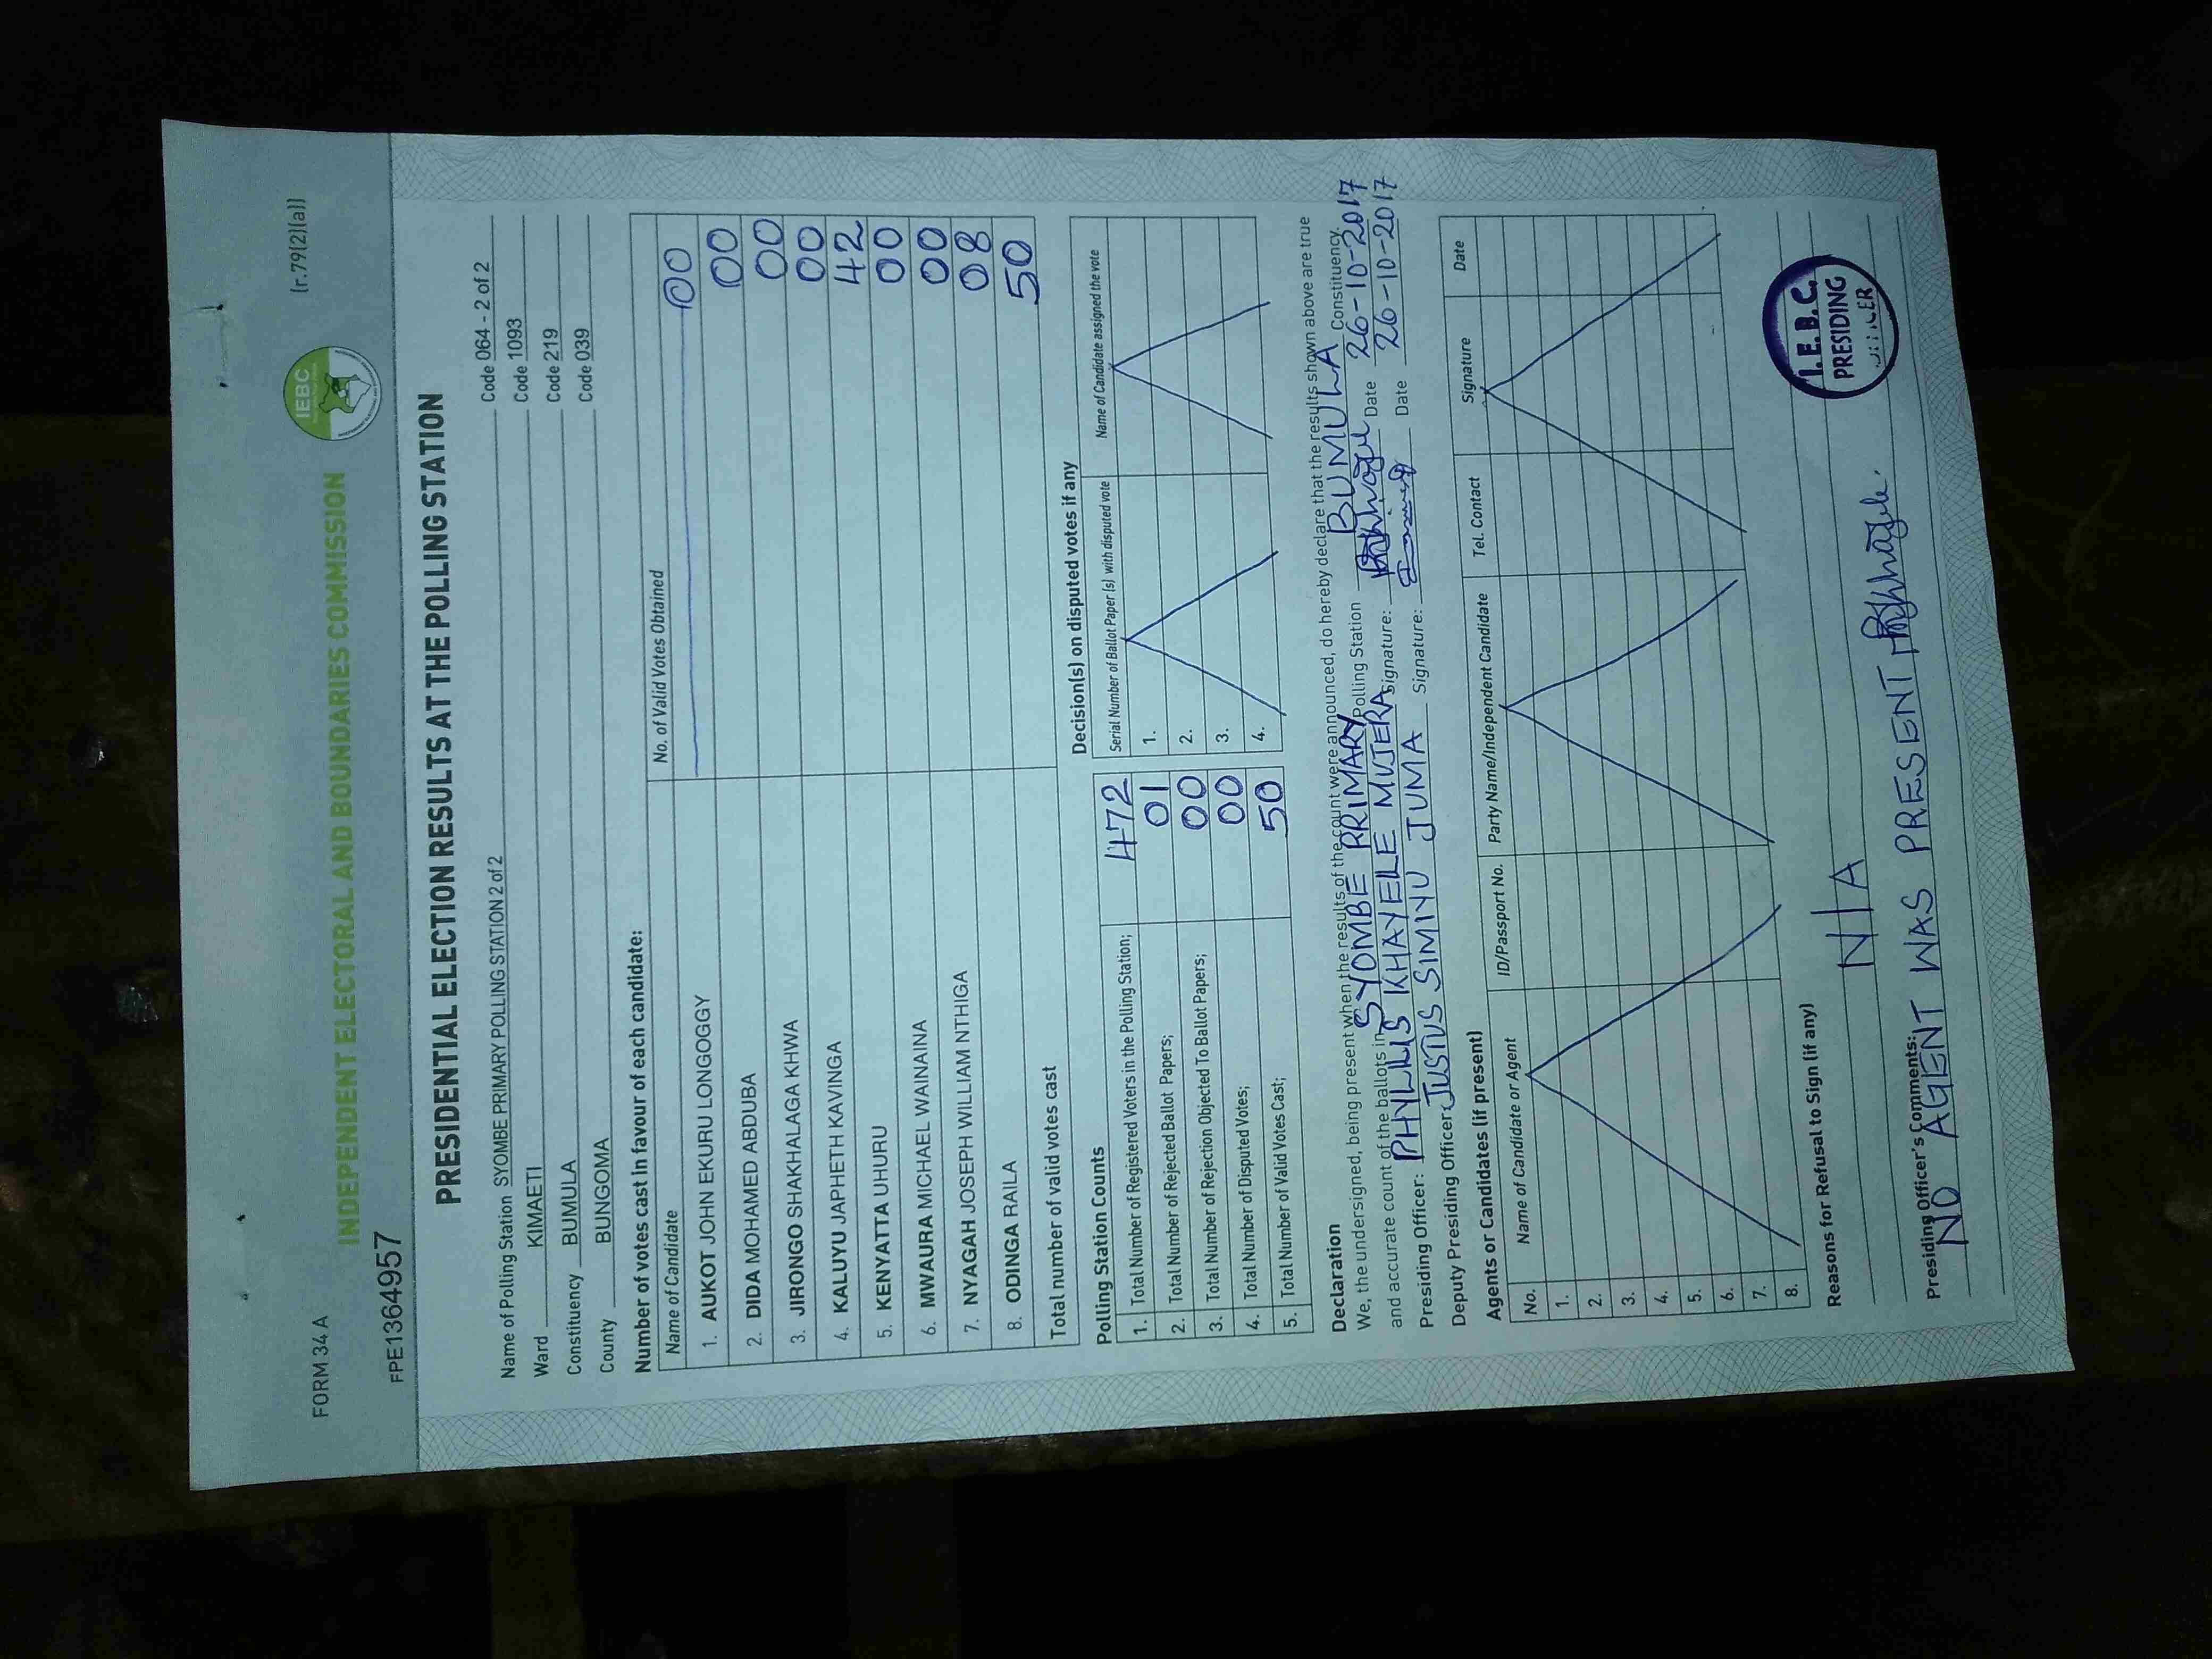 FORM 34A
(r.79(2)(a))
IEBC
INDEPENDENT ELECTORAL AND BOUNDARIES COMMISSION
FPE1364957
PRESIDENTIAL ELECTION RESULTS AT THE POLLING STATION
Name of Polling Station SYOMBE PRIMARY POLLING STATION 2 of 2 Code 064 - 2 of 2
Ward KIMAETI Code 1093
Constituency BUMULA Code 219
County BUNGOMA Code 039
Number of votes cast in favour of each candidate:
Name of Candidate No. of Valid Votes Obtained
1. AUKOT JOHN EKURU LONGOGGY 00
2. DIDA MOHAMED ABDUBA 00
3. JIRONGO SHAKHALAGA KHWA 00
4. KALUYU JAPHETH KAVINGA 00
5. KENYATTA UHURU 42
6. MWAURA MICHAEL WAINAINA 00
7. NYAGAH JOSEPH WILLIAM NTHIGA 00
8. ODINGA RAILA 08
Total number of valid votes cast 50
Polling Station Counts
1. Total Number of Registered Voters in the Polling Station; 472
2. Total Number of Rejected Ballot Papers; 01
3. Total Number of Rejection Objected To Ballot Papers; 00
4. Total Number of Disputed Votes; 00
5. Total Number of Valid Votes Cast; 50
Decision(s) on disputed votes if any
Serial Number of Ballot Paper (s) with disputed vote Name of Candidate assigned the vote
1.
2.
3.
4.
Declaration
We, the undersigned, being present when the results of the count were announced, do hereby declare that the results shown above are true
and accurate count of the ballots in SYOMBE PRIMARY Polling Station BUMULA Constituency.
Presiding Officer: PHYLLIS KHAYELE MUJERA Signature: Date 26-10-2017
Deputy Presiding Officer: JUSTUS SIMIYU JUMA Signature: Date 26-10-2017
Agents or Candidates (if present)
No. Name of Candidate or Agent ID/Passport No. Party Name/Independent Candidate Tel. Contact Signature Date
1.
2.
3.
4.
5.
6.
7.
8.
Reasons for Refusal to Sign (if any)
N/A
I.E.B.C.
PRESIDING
OFFICER
Presiding Officer's Comments:
NO AGENT WAS PRESENT